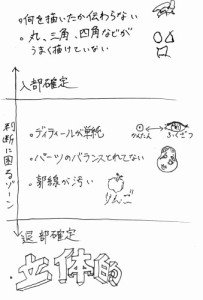 ・何を描いたか伝わらない
・丸、三角、四角などが
うまく描けていない
入部確定
判断に困るゾーン
・ディティールが単純
かんたん
ふくざつ
・パーツのバランスとれてない
・輪郭線が汚い
りんご
退部確定
・立体的